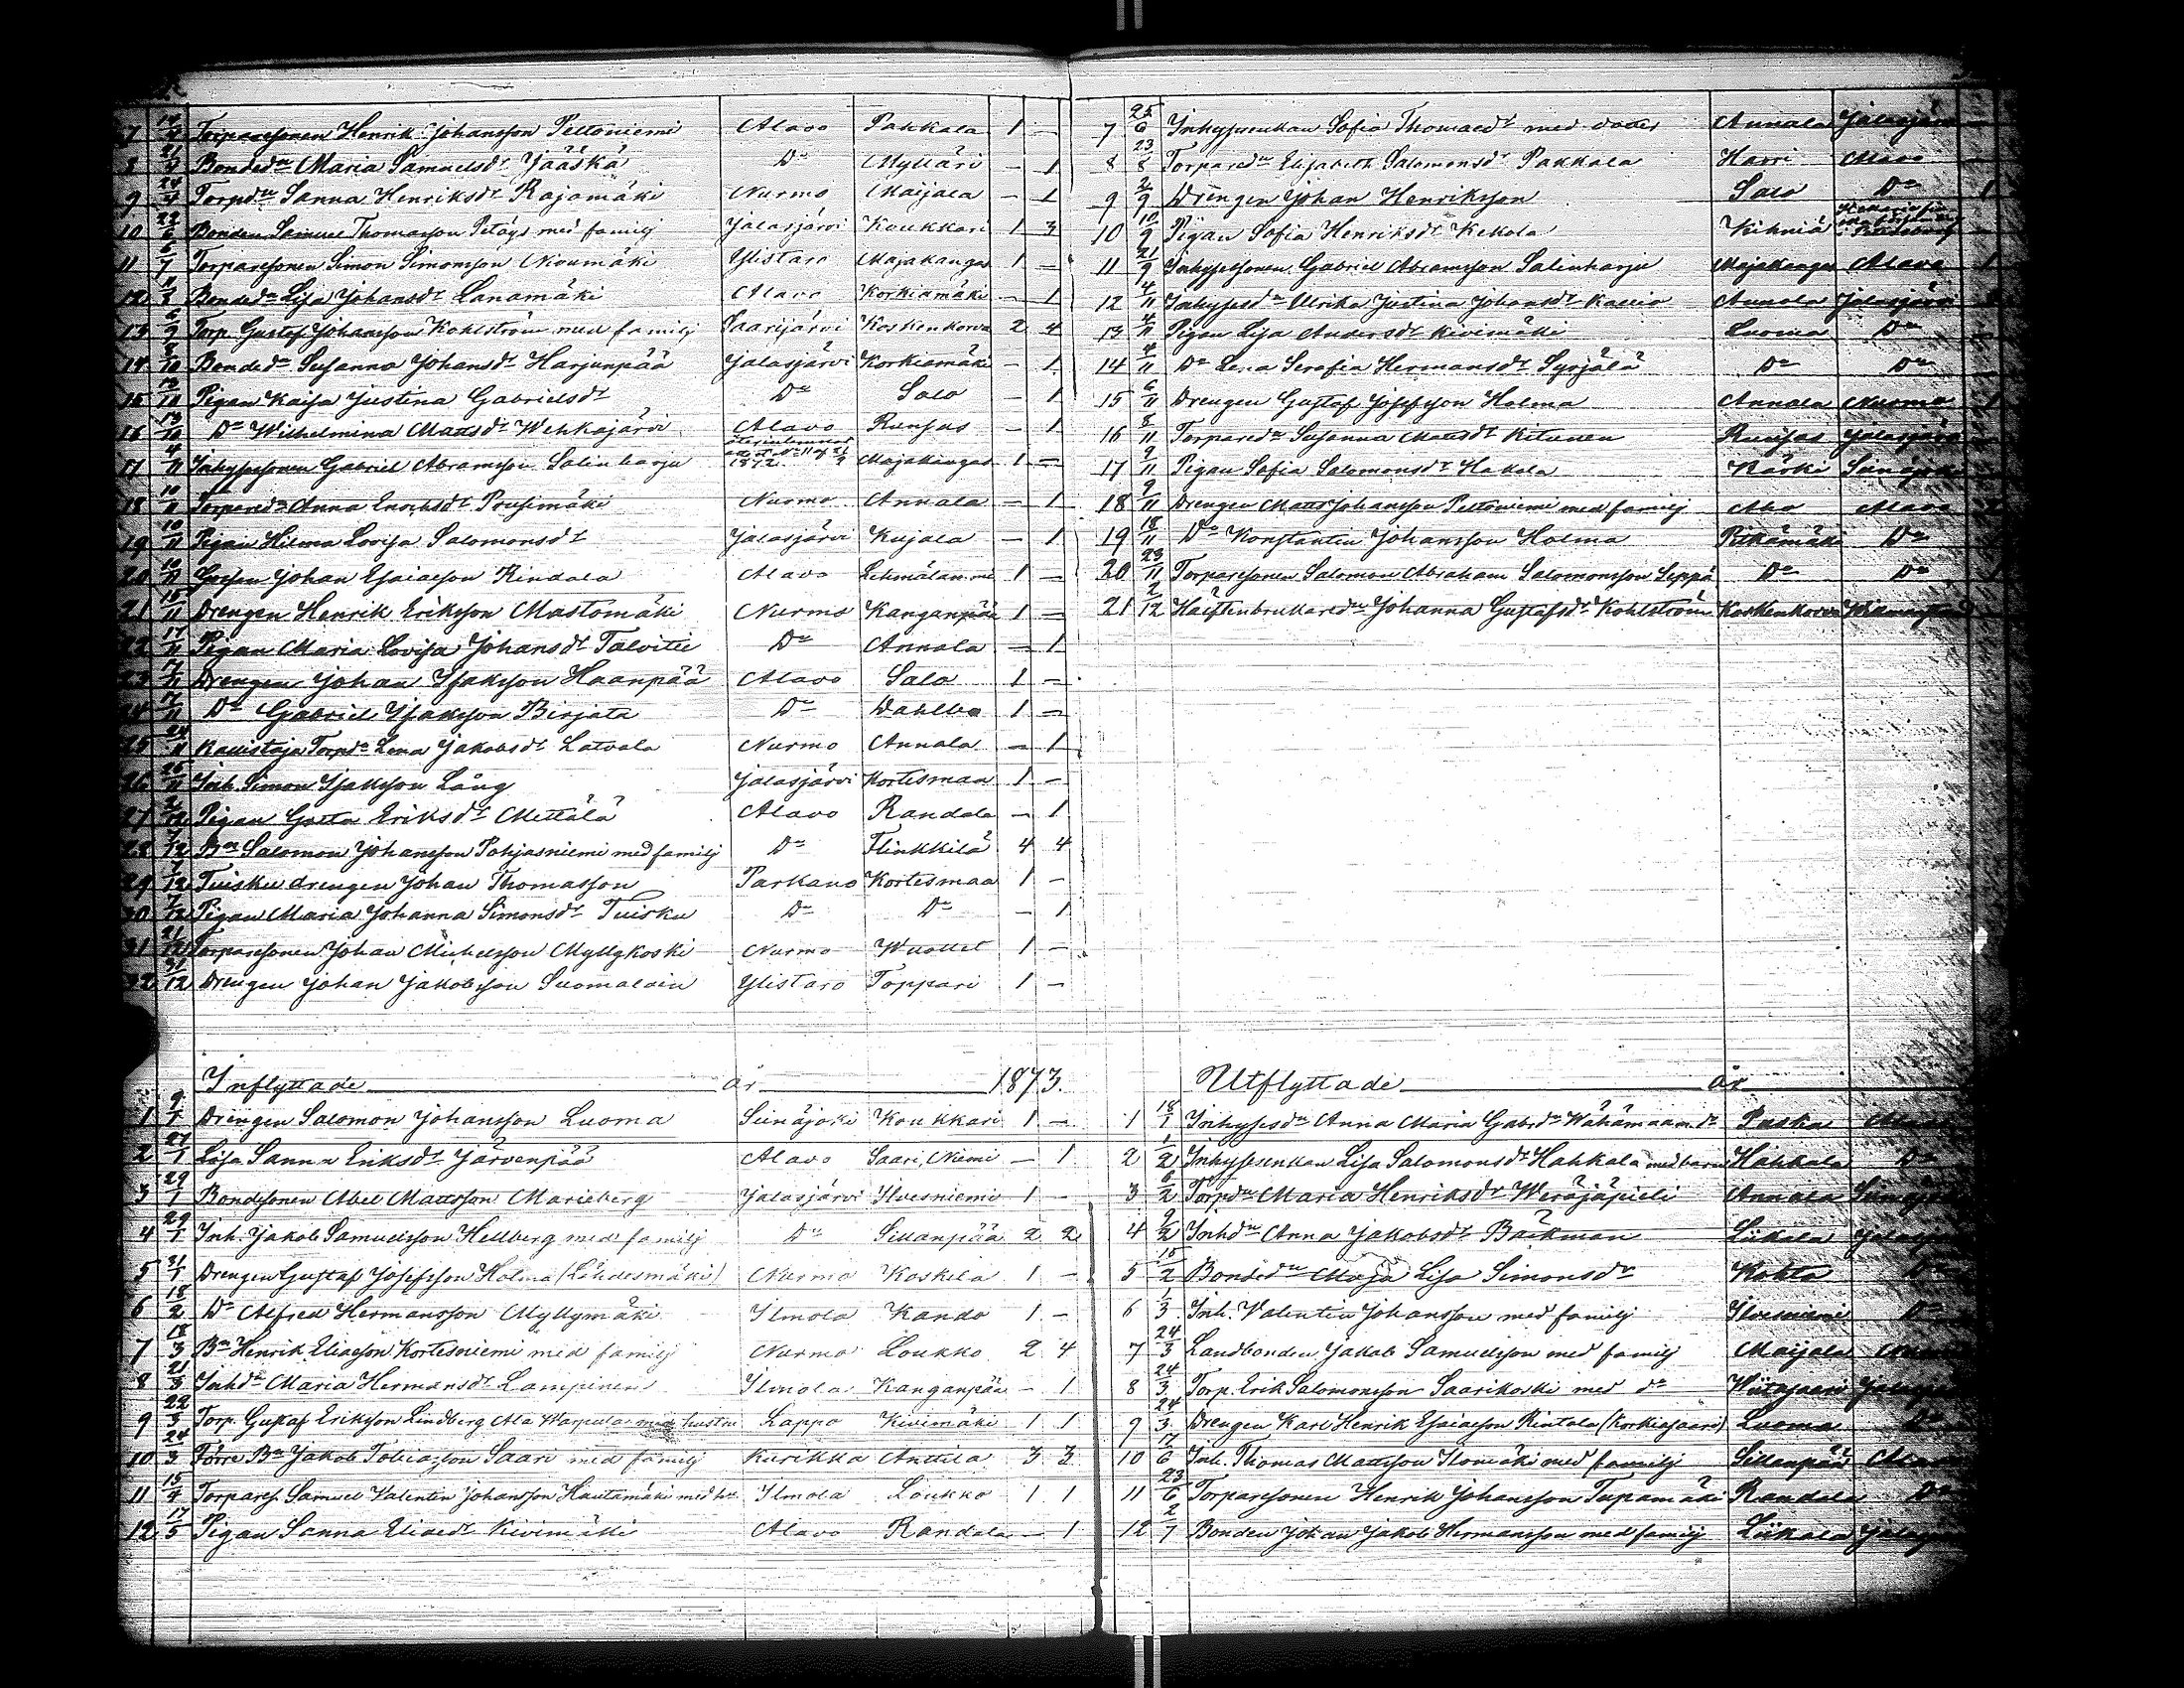 7 14/4 Torparesonen Henrik Johansson Peltoniemi Alavo Pakkala 1 —
8 21/4 Bondedn Maria Samuelsdr Jääskä Dn Mylläri — 1
9 24/4 Torpdn Sanna Henriksdr Rajamäki Nurmo Maijala — 1
10 Bonden Samuel Thomasson Petäys med familj Jalasjärvi Koukkari 1 3
11 6/7 Torparesonen Simon Simonsson Nioumäki Ylistaro Majakangas 1 —
12 Bondedn Lisa Johansdr Lanamäki Alavo Korkiamäki — 1
13 Torp. Gustaf Johansson Kohlström med familj Saarijärvi Koskenkorva 2 4
14 Bondedn Susanna Johansdr Harjunpää Jalasjärvi Korkiamäki — 1
15 Pigan Kaisa Justina Gabrielsdr Dn Salo — 1
16 13/10 Dn Wilhelmina Mattsdr Wehkajärvi Alavo Runsas — 1
17 4/11 Inhysessonen Gabriel Abramsson Salinharju 1872 Majakangas 1 —
18 10/11 Torparedn Anna Enochsdr Prusimäki Nurmo Annala — 1
19 10/11 Pigan Hilma Lovisa Salomonsdr Jalasjärvi Kujala — 1
20 10/11 Gossen Johan Esaiasson Rindala Alavo 1 —
21 15/11 Drengen Henrik Eriksson Mastomäki Nurmo Kanganpää 1 —
22 17/11 Pigan Maria Lovisa Johansdr Talvitie Dn Annala — 1
23 17/11 Drengen Johan Isaksson Haanpää Alavo Salo 1 —
24 17/11 Dn Gabriel Isaksson Birjata Dn Dahlbo 1 —
25 24/11 Torpdn Lena Jakobsdr Latvala Nurmo Annala — 1
26 26/11 Inh. Simon Isaksson Lång Jalasjärvi Kortesmaa 1 —
27 2/12 Pigan Greta Eriksdr Mettälä Alavo Randala — 1
28 7/12 Bn Salomon Johansson Pohjasniemi med familj Dn Flinkkilä 4 4
29 7/12 Tuisku drengen Johan Thomasson Parkano Kortesmaa 1 —
30 7/12 Pigan Maria Johanna Simonsdr Tuisku Dn Dn — 1
31 21/12 Torparesonen Johan Michelsson Myllykoski Nurmo Wuollet 1 —
32 31/12 Drengen Johan Jakobsson Suomalain Ylistaro Toppari 1 —
Inflyttade år 1873.
1 9/1 Drengen Salomon Johansson Luoma Seinäjoki Koukkari 1 —
2 27/1 Lisa Sanna Eriksdr Järvenpää Alavo Saari, Niemi — 1
3 29/1 Bondesonen Abel Mattsson Marieberg Jalasjärvi Ilvesniemi 1 —
4 29/1 Inh. Jakob Samuelsson Hellberg med familj Dn Sillanpää 2 2
5 31/1 Drengen Gustaf Josefsson Holma (Lähdesmäki) Nurmo Koskela 1 —
6 18/2 Dn Alfred Hermansson Myllymäki Ilmola Kando 1 —
7 18/3 Bn Henrik Eliasson Kortesniemi med familj Nurmo Loukko 2 4
8 21/3 Inhdn Maria Hermansdr Lampinen Ilmola Kanganpää — 1
9 22/3 Torp. Gustaf Eriksson Lindberg Ala Warpula med hustru Lappo Kivimäki 1 1
10 24/3 Förre Bn Jakob Tobiasson Saari med familj Kurikka Anttila 3 3
11 15/4 Torpares. Samuel Valentin Johansson Hautamäki med hu Ilmola Loukko 1 1
12 17/5 Pigan Sanna Eliaedr Kivimäki Alavo Randala — 1
7 25/6 Inhysesenkan Sofia Thomasdr med dotter Annala Jalasjärvi
8 23/8 Torparedn Elisabeth Salomonsdr Pakkala Harri Alavo
9 2/9 Drengen Johan Henriksson Salo Dn 1
10 10/9 Pigan Sofia Henriksdr Kekola Kihniä
11 21/9 Inhysessonen Gabriel Abramsson Salinharju Majakangas Alavo 1
12 4/11 Inhysesdn Ulrika Justina Johansdr Kallio Annala Jalasjärvi
13 4/11 Pigan Lisa Andersdr Kivimäki Luoma Dn
14 4/11 Dn Lena Serafia Hermansdr Syrjälä Dn Dn
15 6/11 Drengen Gustaf Josefsson Holma Annala Nurmo 1
16 8/11 Torparedn Susanna Mattsdr Kitunen Runsas Jalasjärvi
17 9/11 Pigan Sofia Salomonsdr Hakola Kärki Seinäjoki
18 9/11 Drengen Matts Johansson Peltoniemi med familj Aho Alavo
19 18/11 Dn Konstantin Johansson Holma Pitkämäki Dn
20 23/11 Torparesonen Salomon Abraham Salomonsson Seppä Dn Dn
21 2/12 Johanna Gustafsdr Kohlström Koskenkorva
Utflyttade år
1 18/1 Inhysesdn Anna Maria Gabrdr Wähämaa Paska
2 1/2 Inhysesenkan Lisa Salomonsdr Hahkala med barn Hahkala Dn
3 6/2 Torpdn Maria Henriksdr Weräjäpieli Annala
4 9/2 Inhdn Anna Jakobsdr Backman Liikala
5 15/2 Bondedn Maja Lisa Simonsdr Kohta Dn
6 1/3 Inh. Valentin Johansson med familj Ilvesniemi Dn
7 24/3 Landbonden Jakob Samuelsson med familj Maijala
8 24/3 Torp. Erik Salomonsson Saarikoski med dn Wiitasaari
9 24/3 Drengen Karl Henrik Esaiasson Rintala (Korkiasaari) Luoma Dn
10 17/6 Inh. Thomas Mattsson Ilomäki med familj Sillanpää
11 23/6 Torparesonen Henrik Johansson Tupamäki Randala Dn
12 2/7 Bonden Johan Jakob Hermansson med familj Liikala